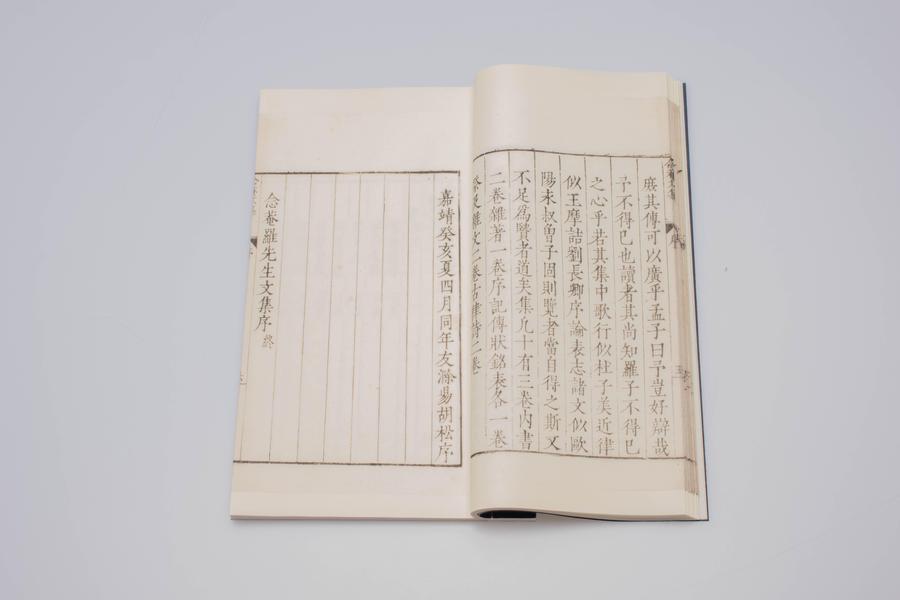 庶其傳可以廣乎孟子曰予豈好辯哉
予不得已也讀者其尚知羅子不得已
之心乎若其集中歌行似杜子美近律
似王摩詰劉長卿序論表志諸文似歐
陽永叔曾子固則覽者當自得之斯又
不足爲賢者道矣集凡十有三卷內書
二卷雜著一卷序記傳狀銘表各一卷
祭及雜文二卷古律詩二卷
嘉靖癸亥夏四月同年友滁昜胡松序
念菴羅先生文集序 終